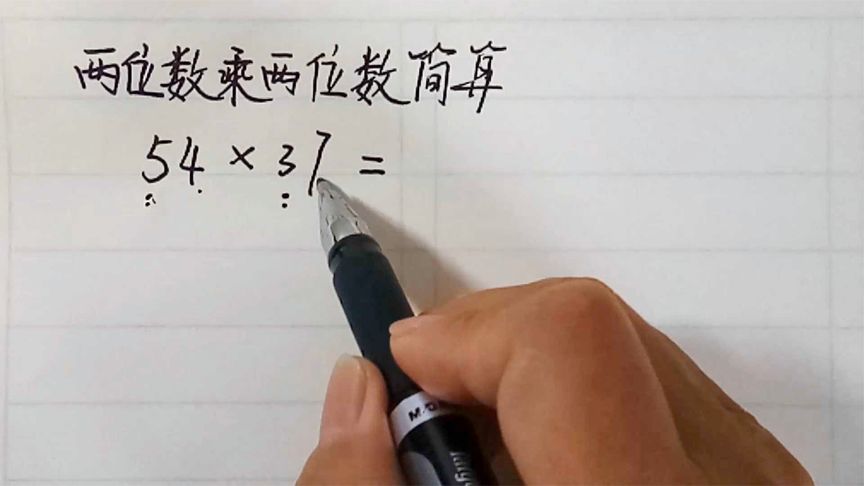 两位数乘两位数简算
54×37=